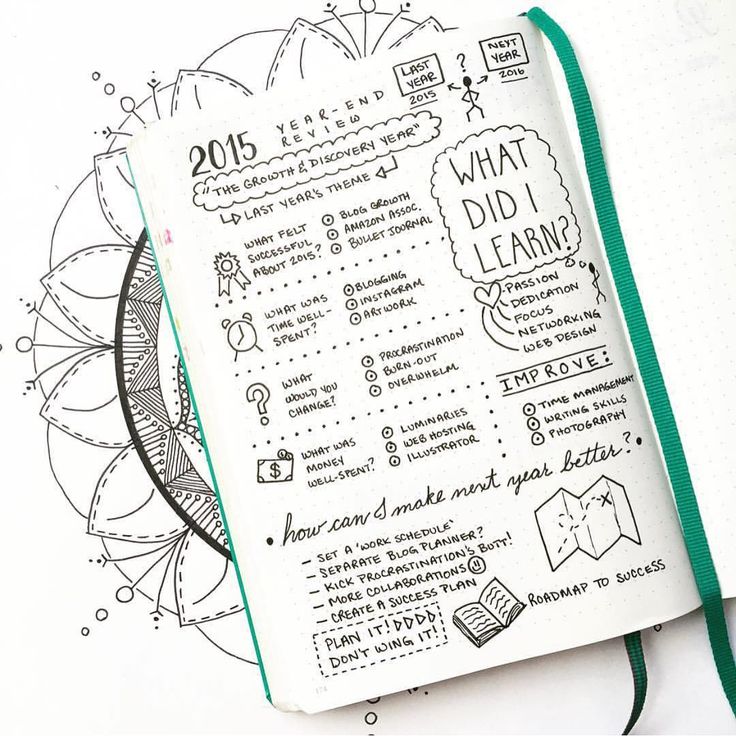 2015 YEAR-END
REVIEW
LAST
YEAR
2015
?
NEXT
YEAR
2016
"THE GROWTH & DISCOVERY YEAR"
LAST YEAR'S THEME
WHAT FELT
SUCCESSFUL
ABOUT 2015?
BLOG GROWTH
AMAZON ASSOC.
BULLET JOURNAL
WHAT WAS
TIME WELL-
SPENT?
BLOGGING
INSTAGRAM
ARTWORK
?
WHAT
WOULD YOU
CHANGE?
PROCRASTINATION
BURN-OUT
OVERWHELM
$
WHAT WAS
MONEY
WELL-SPENT?
LUMINARIES
WEB HOSTING
ILLUSTRATOR
WHAT
DID I
LEARN?
PASSION
DEDICATION
FOCUS
NETWORKING
WEB DESIGN
IMPROVE:
TIME MANAGEMENT
WRITING SKILLS
PHOTOGRAPHY
• how can I make next year better? •
– SET A 'WORK SCHEDULE'
– SEPARATE BLOG PLANNER?
– KICK PROCRASTINATION'S BUTT!
– MORE COLLABORATIONS
– CREATE A SUCCESS PLAN
PLAN IT!
DON'T WING IT!
X
ROADMAP TO SUCCESS